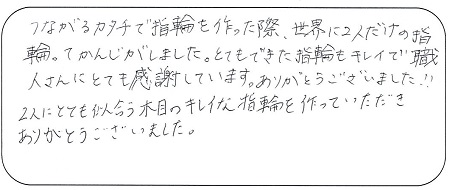 つながるカタチで指輪を作った際、世界に2人だけの指
輪。てかんじがしました。とてもできた指輪もキレイで職
人さんにとても感謝しています。ありがとうございました!!
2人にとても似合う木目のキレイな指輪を作っていただき
ありがとうございました。